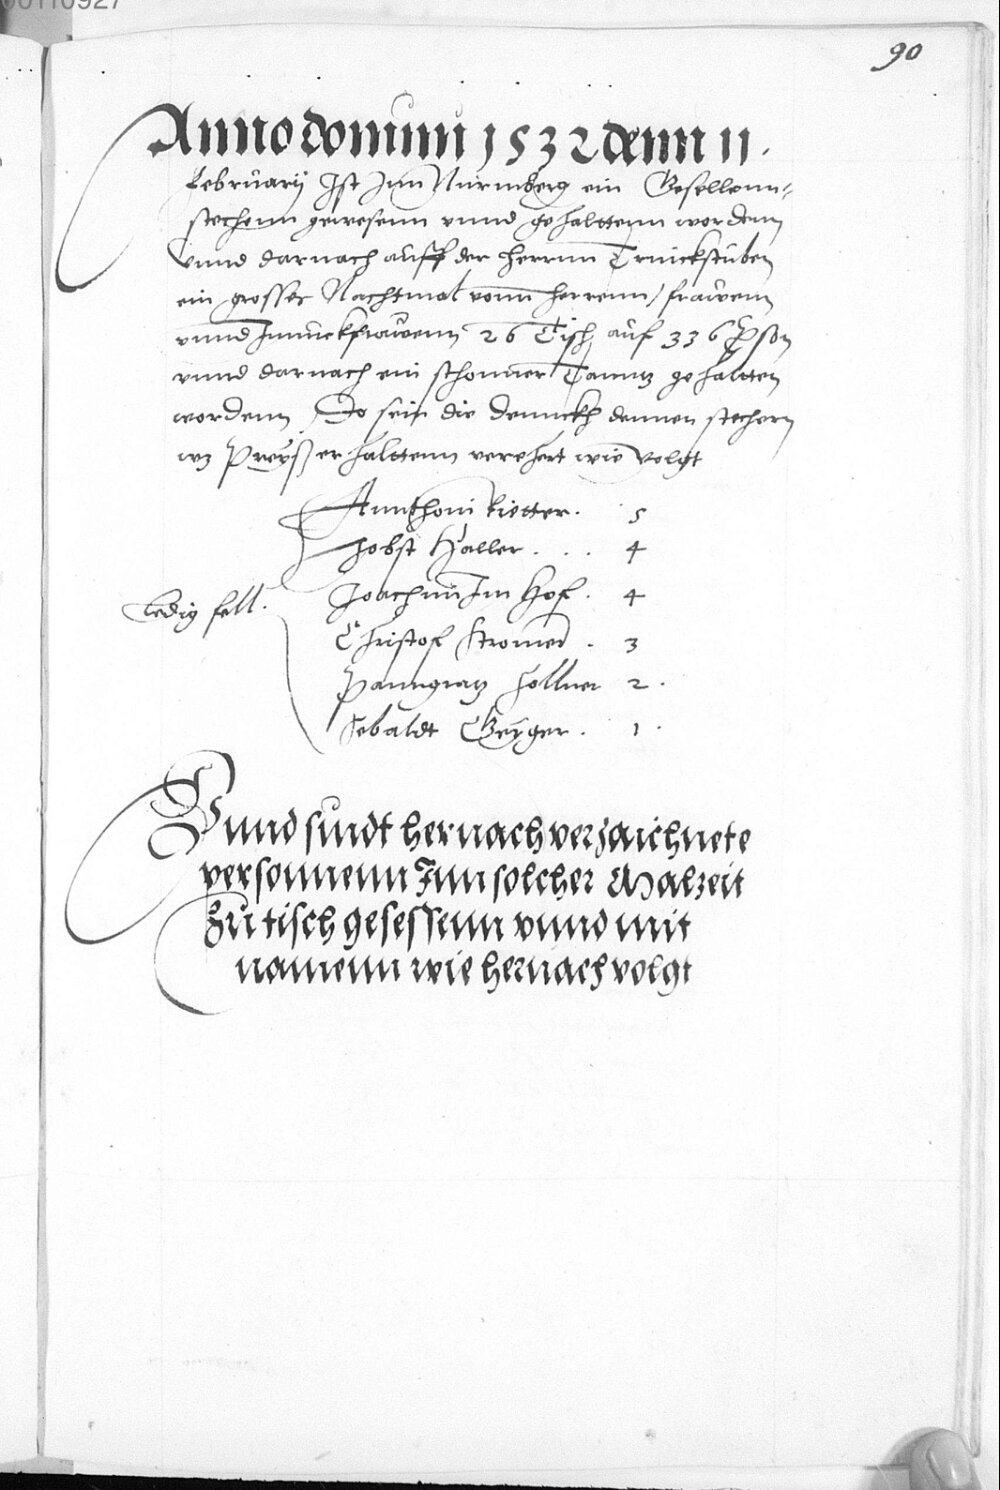 90
Anno domini 1532 denn 11.
February Ist Inn Nürmberg ein Gesellenn-
stechenn gewesenn vnnd gehalttenn wordenn
vnnd darnach auff der herrnn Trinckstuben
ein grosser Nachtmal vonn herrenn / frawenn
vnnd Junnckfrawenn 26 Tisch auf 336 Pson
vnnd darnach ein schonner Tanntz gehaltten
wordenn Do sein die dennckh dennen stechern
wz Preyß erhalttenn verehert wie volgt
Annthoni Rietter. 5
Jobst Haller . . . 4
Joachim Im Hof. 4
ledig fell.
Christof Stromer. 3
Panngratz Zollner 2.
Sebaldt Geyger. 1.
Vnnd sindt hernach verzaichnete
personnenn Inn solcher Malzeit
Zu tisch gesessenn vnnd mit
namenn wie hernach volgt